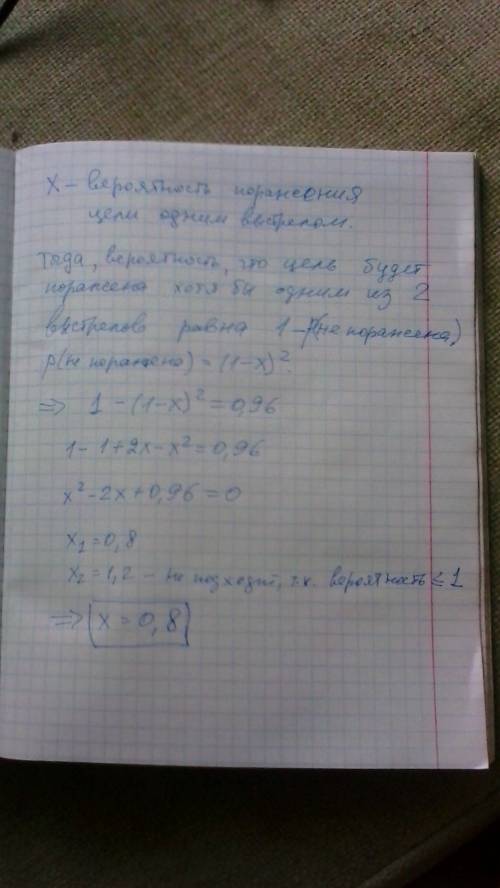 X – вероятность поражения
цели одним выстрелом.
Тогда, вероятность, что цель будет
поражена хотя бы одним из 2
выстрелов равна 1 – P(не поражена)
P(не поражена) = (1-x)².
=> 1 - (1-x)² = 0,96
1 - 1 + 2x - x² = 0,96
x² - 2x + 0,96 = 0
x₁ = 0,8
x₂ = 1,2 – не подходит, т.к. вероятность ≤ 1
=> x = 0,8